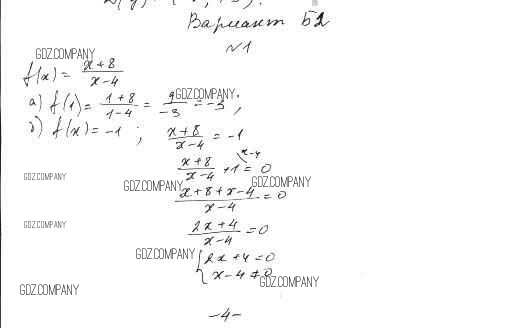 Вариант Б2
N1
GDZ.COMPANY
f(x) = \frac{x+8}{x-4}
а) f(1) = \frac{1+8}{1-4} = \frac{9}{-3} = -3;
GDZ.COMPANY
б) f(x) = -1; \frac{x+8}{x-4} = -1
\frac{x+8}{x-4} + 1 = 0
x-4
GDZ.COMPANY
GDZ.COMPANY
GDZ.COMPANY
\frac{x+8+x-4}{x-4} = 0
GDZ.COMPANY
\frac{2x+4}{x-4} = 0
GDZ.COMPANY
{2x+4=0
x-4≠0
GDZ.COMPANY
GDZ.COMPANY
-4-